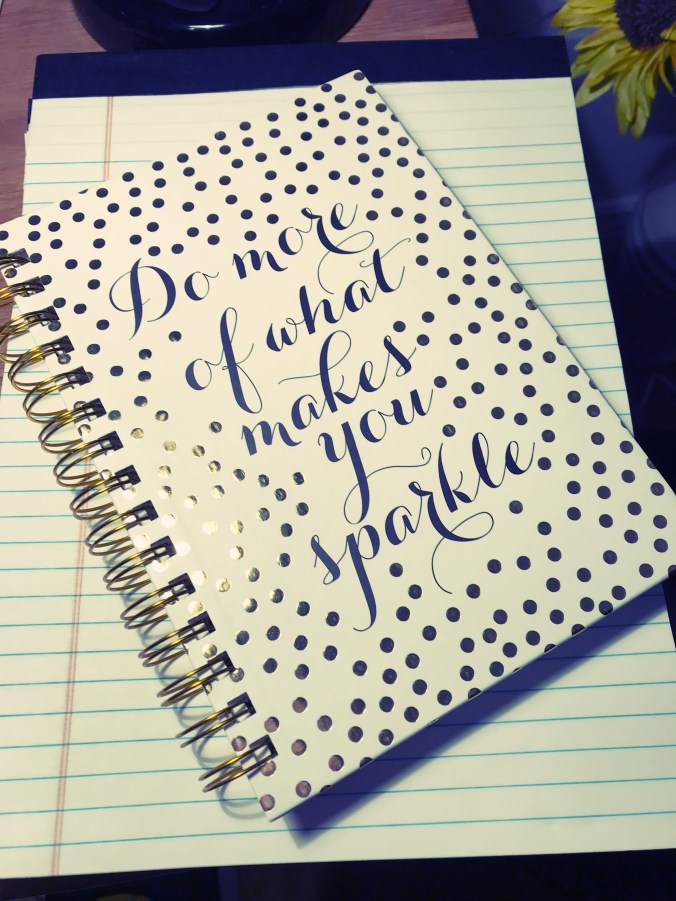 Do more
of what
makes
you
sparkle